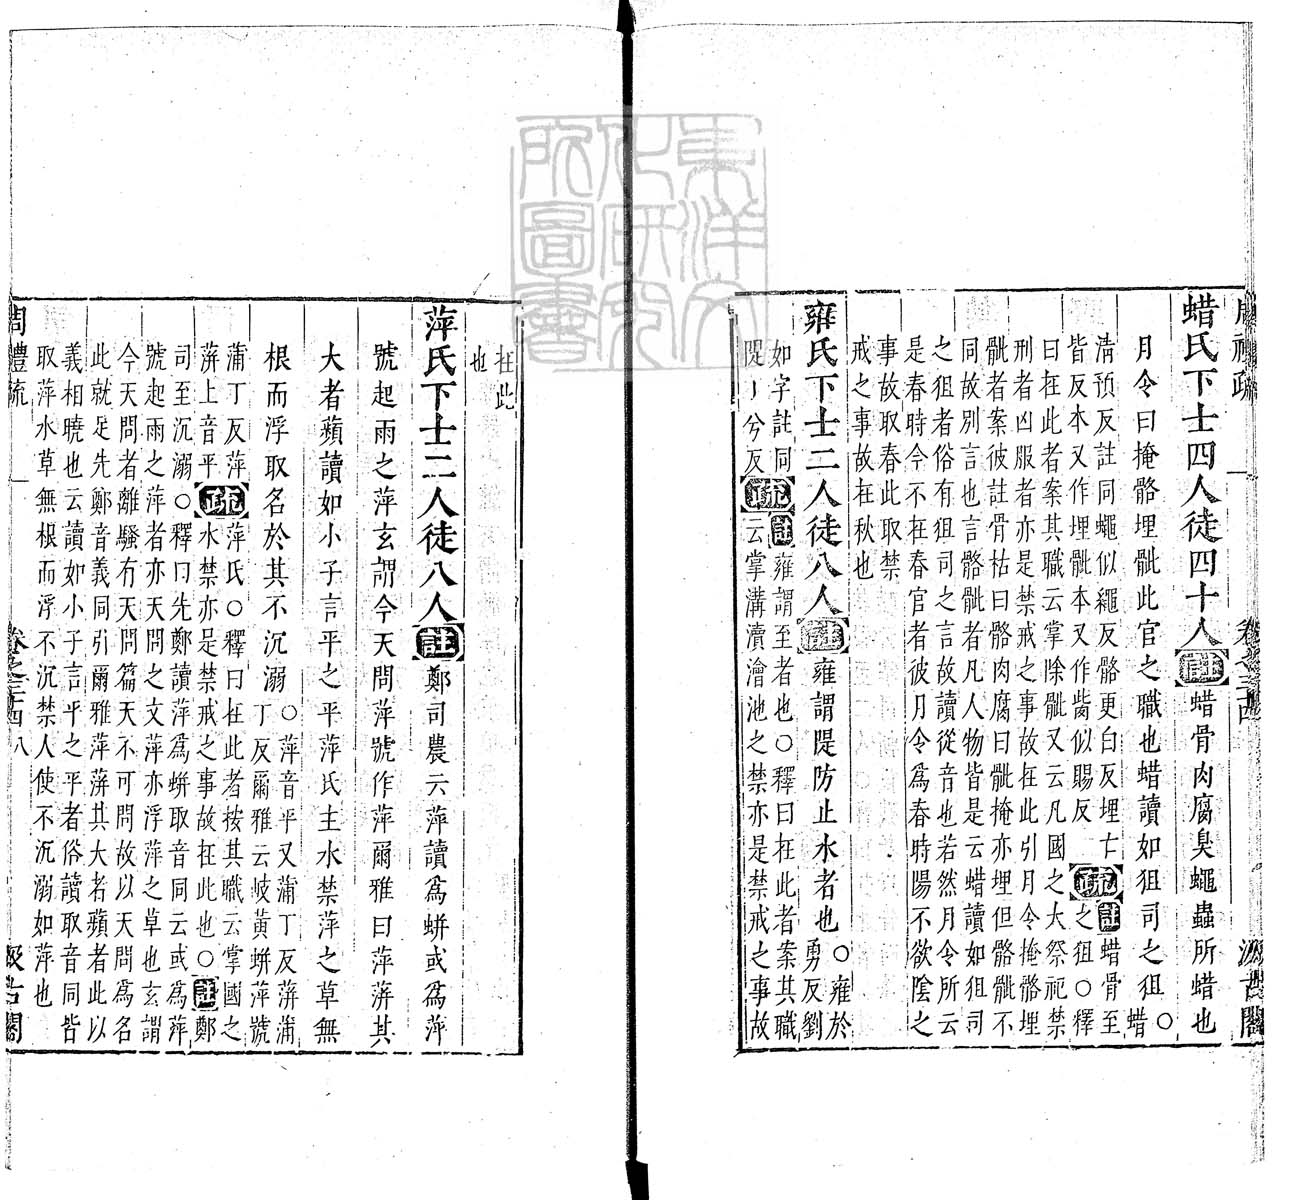 周禮疏 卷之三十四 汲古閣
蜡氏下士四人徒四十人註蜡骨肉腐臭蠅蟲所蜡也
月令曰掩骼埋骴此官之職也蜡讀如狙司之狙○蜡
清預反註同蠅似繩反骼更白反埋亡
皆反本又作埋骴本又作胔似賜反疏註蜡骨至
之狙○釋
曰在此者案其職云掌除骴又云凡國之大祭祀禁
刑者凶服者亦是禁戒之事故在此引月令掩骼埋
骴者案彼註骨枯曰骼肉腐曰骴掩亦埋但骼骴不
同故別言也言骼骴者凡人物皆是云蜡讀如狙司
之狙者俗有狙司之言故讀從音也若然月令所云
是春時今不在春官者彼月令爲春時陽不欲陰之
事故取春此取禁
戒之事故在秋也
雍氏下士二人徒八人註雍謂隄防止水者也○雍於
勇反劉
如字註同
隄丁兮反疏註雍謂至者也○釋曰在此者案其職
云掌溝瀆澮池之禁亦是禁戒之事故
在此
也
萍氏下士二人徒八人註鄭司農云萍讀爲蛢或爲萍
號起雨之萍玄謂今天問萍號作萍爾雅曰萍蓱其
大者蘋讀如小子言平之平萍氏主水禁萍之草無
根而浮取名於其不沉溺○萍音平又蒲丁反蓱蒲
丁反爾雅云岐黃蛢萍號
蒲丁反萍
蓱上音平疏萍氏○釋曰在此者按其職云掌國之
水禁亦是禁戒之事故在此也○註鄭
司至沉溺○釋曰先鄭讀萍爲蛢取音同云或爲萍
號起雨之萍者亦天問之文萍亦浮萍之草也玄謂
今天問者離騷有天問篇天不可問故以天問爲名
此就足先鄭音義同引爾雅萍蓱其大者蘋者此以
義相曉也云讀如小子言平之平者俗讀取音同皆
取萍水草無根而浮不沉禁人使不沉溺如萍也
周禮疏 卷之三十四 八 汲古閣
東洋文
化研究
所圖書